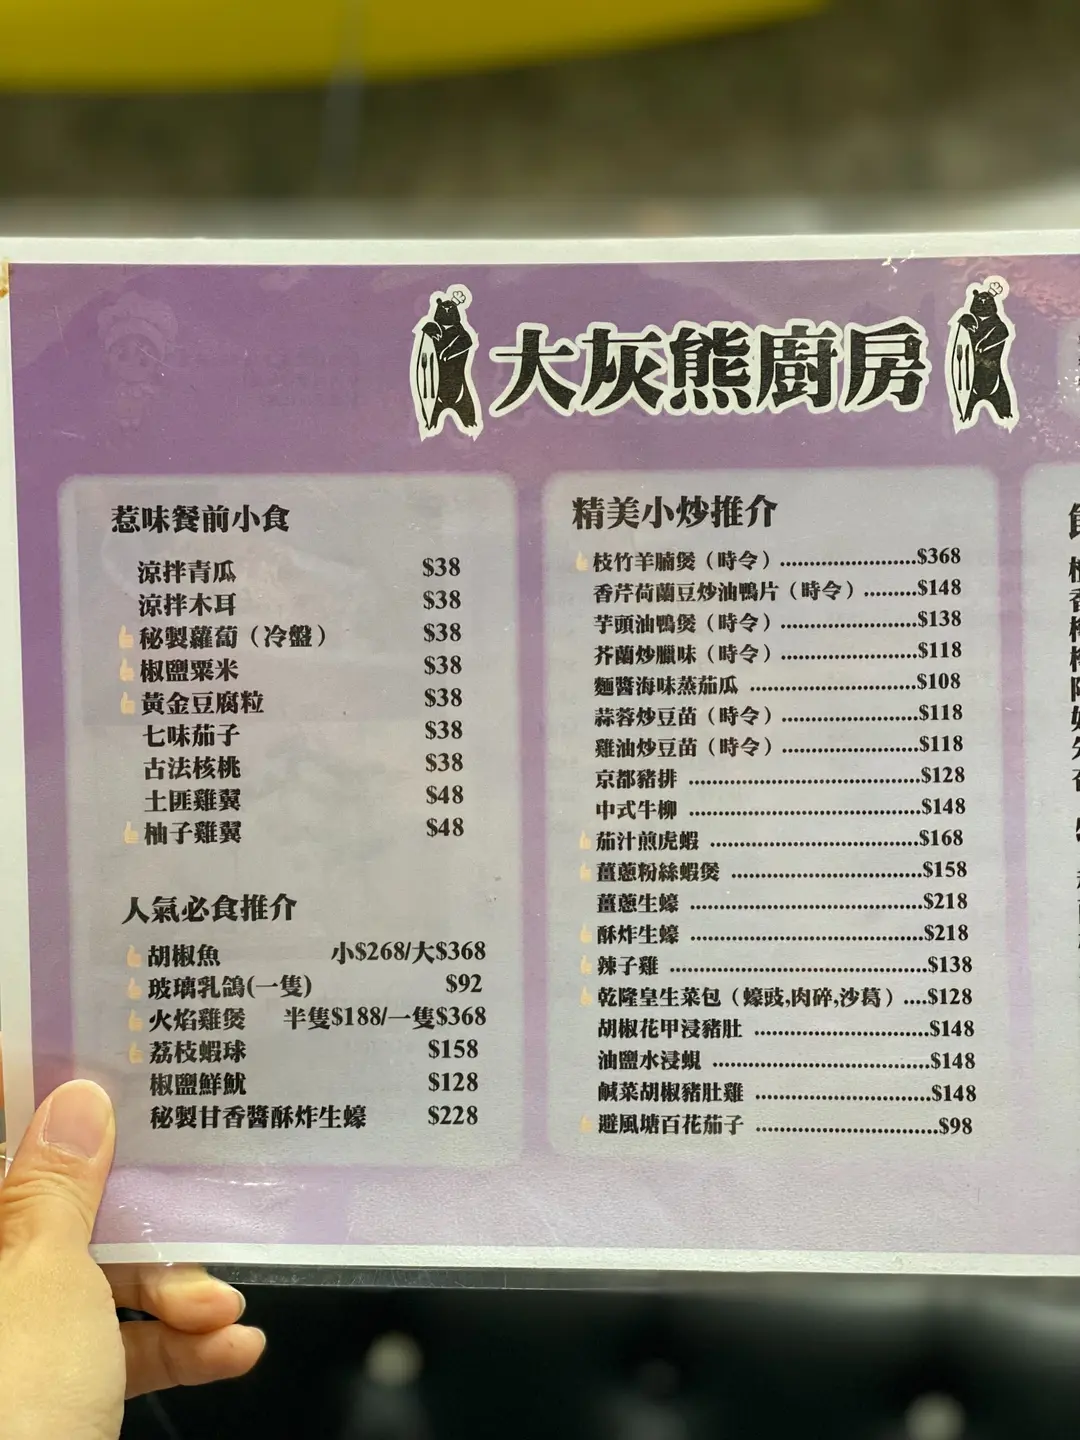 大灰熊廚房
惹味餐前小食
涼拌青瓜 $38
涼拌木耳 $38
秘製蘿蔔（冷盤） $38
椒鹽粟米 $38
黃金豆腐粒 $38
七味茄子 $38
古法核桃 $38
土匪雞翼 $48
柚子雞翼 $48
人氣必食推介
胡椒魚 小$268/大$368
玻璃乳鴿(一隻) $92
火焰雞煲 半隻$188/一隻$368
荔枝蝦球 $158
椒鹽鮮魷 $128
秘製甘香醬酥炸生蠔 $228
精美小炒推介
枝竹羊腩煲（時令）........................$368
香芹荷蘭豆炒油鴨片（時令）.........$148
芋頭油鴨煲（時令）........................$138
芥蘭炒臘味（時令）........................$118
麵醬海味蒸茄瓜 .............................$108
蒜蓉炒豆苗（時令）........................$118
雞油炒豆苗（時令）........................$118
京都豬排 ........................................$128
中式牛柳 ........................................$148
茄汁煎虎蝦 ....................................$168
薑蔥粉絲蝦煲 .................................$158
薑蔥生蠔 ........................................$218
酥炸生蠔 ........................................$218
辣子雞 ............................................$138
乾隆皇生菜包（蠔豉,肉碎,沙葛）....$128
胡椒花甲浸豬肚 ..............................$148
油鹽水浸蜆 .....................................$148
鹹菜胡椒豬肚雞 ..............................$148
避風塘百花茄子 ................................$98